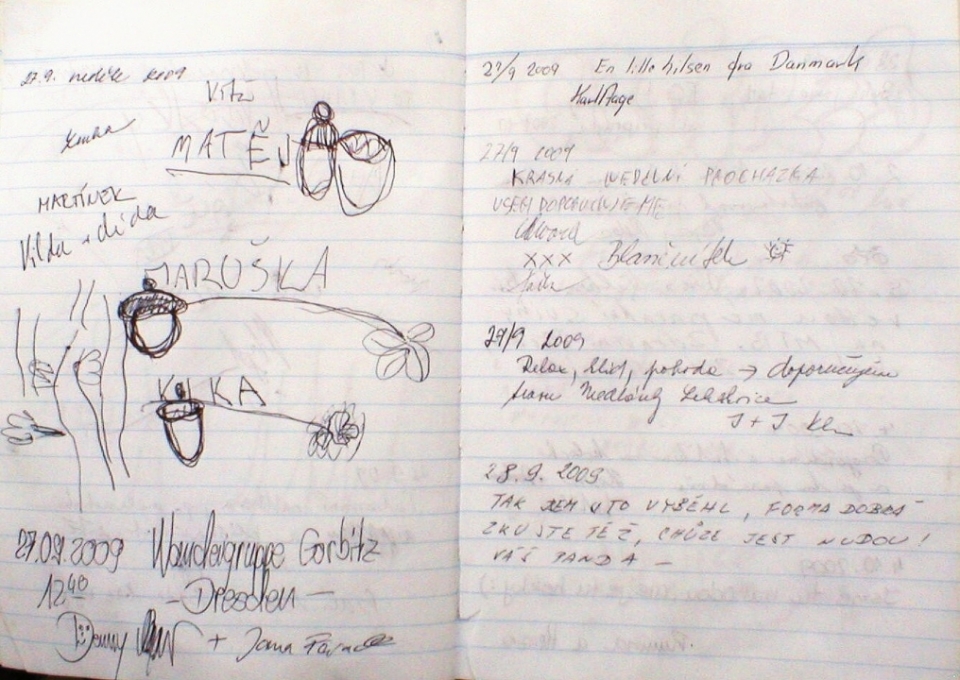 27.9. neděle 2009
Víťa
MATĚJ
MARTÍNEK
Vilda + děda
MARUŠKA
KILKA
27.09.2009 Wandergruppe Gorbitz
12:40 - Dresden -
Denny + Jana
27/9 2009 En lille hilsen fra Danmark
Karl Åge
27/9 2009
KRÁSNÁ NEDĚLNÍ PROCHÁZKA
VŠEM DOPORUČUJEME
XXX
27/9 2009
Relax, klid, pohoda → doporučujem
J + J
28.9. 2009
TAK JSEM VYBĚHL, FORMA DOBRÁ
ZKUSTE TÉŽ, CHŮZE JEST NUDOU!
VÁŠ PANDA -